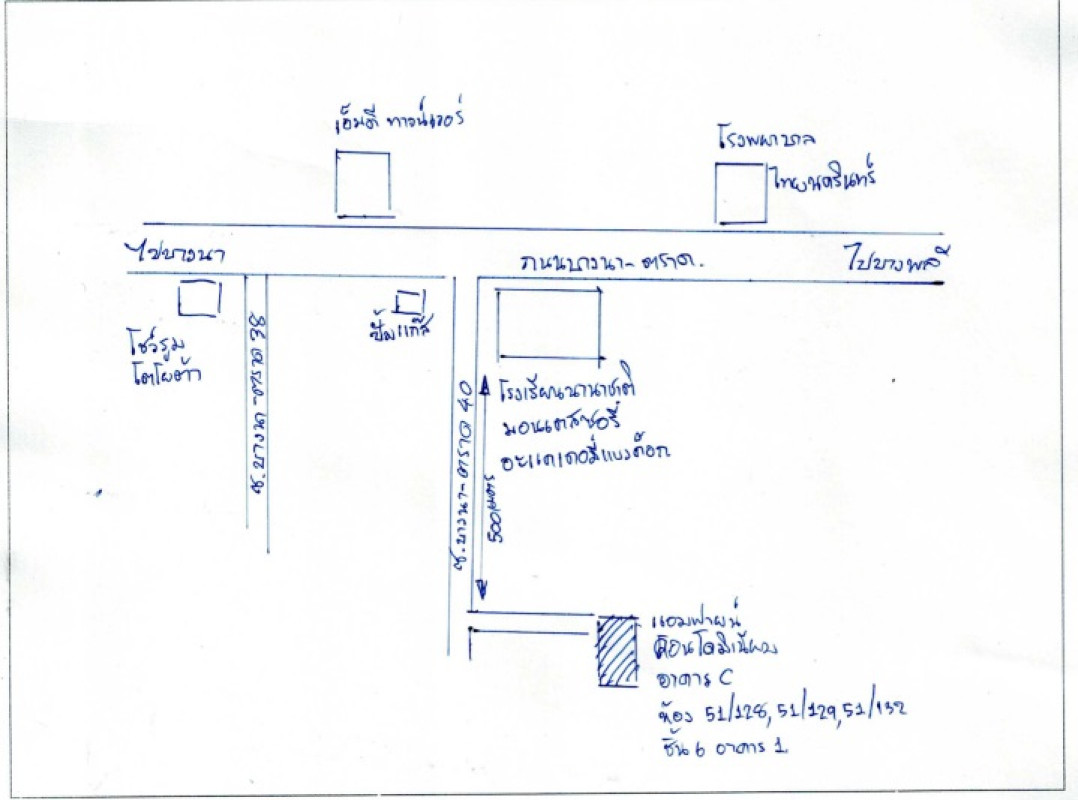 เอ็มดี ทาวน์เวอร์
โรงพยาบาล
ไทยนครินทร์
ไปบางนา
ถนนบางนา-ตราด.
ไปบางพลี
โชว์รูม
โตโยต้า
ซ.บางนา-ตราด 38
ปั๊มแก๊ส
ซ.บางนา-ตราด 40
500เมตร
โรงเรียนนานาชาติ
มอนเตสซอรี่
อะแคเดอมี่แบงค็อก
แอมฟายน์
คอนโดมิเนียม
อาคาร C
ห้อง 51/128, 51/129, 51/132
ชั้น 6 อาคาร 1